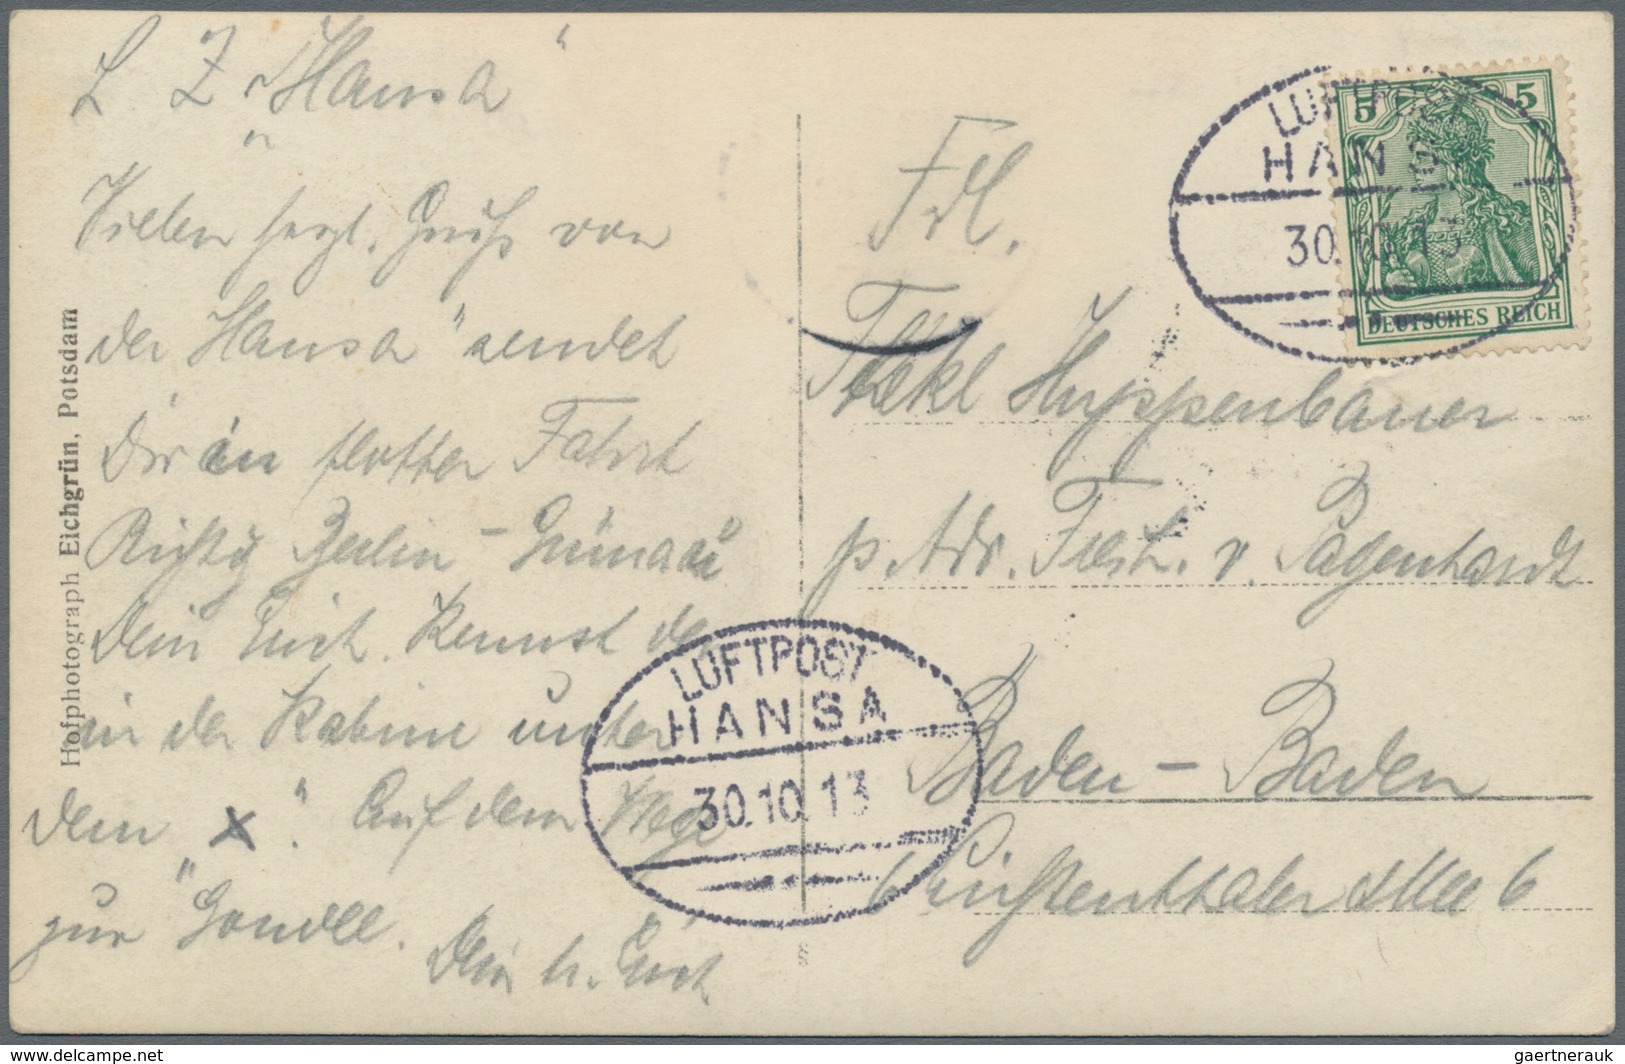 L Z "Hansa"
Vielen herzl. Gruß von
der Hansa" sendet
Dir in flotter Fahrt
Richtg Berlin -
Dein Erich. Kennst de
in der Kabine unter
dem "x". Auf dem Wege
zur Gondel.
Dein h. Erich
Hofphotograph Eichgrün, Potsdam
LUFTPOST
HANSA
30.10.13
5 5
DEUTSCHES REICH
Frl.
Thekl Huppenbauer
p. Adr. Frh. v. Pagenhardt
Baden-Baden
Lichtenthaler Allee 6
LUFTPOST
HANSA
30.10.13
gaertnerauk